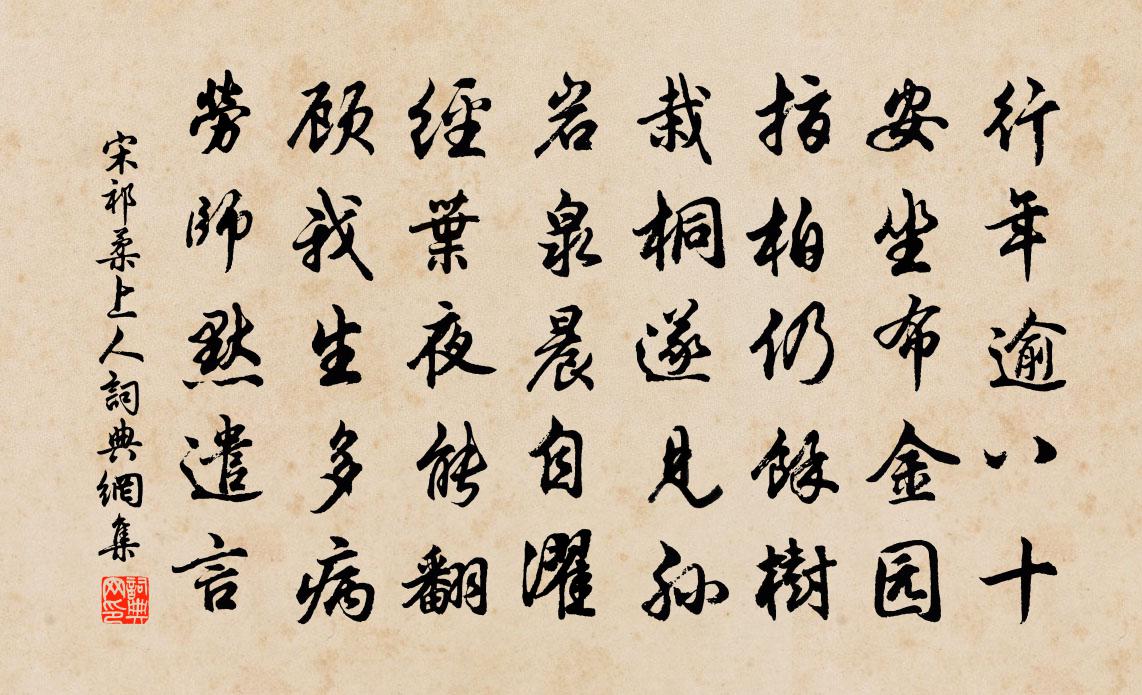 行年逾八十
安坐布金园
指柏仍馀樹
栽桐遂見孙
岩泉晨自濯
經葉夜能翻
顾我生多病
勞師默遣言
宋祁柔上人詞典網集
詞典网印